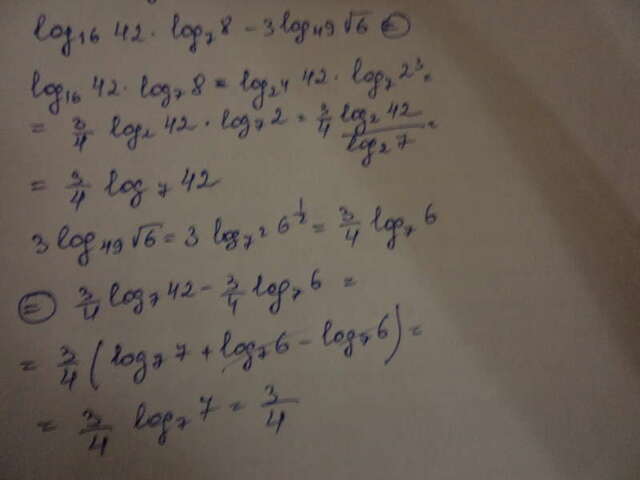 log₁₆ 42 · log₇ 8 − 3 log₄₉ √6 ⊜
log₁₆ 42 · log₇ 8 = log₂⁴ 42 · log₇ 2³ =
= 3/4 log₂ 42 · log₇ 2 = 3/4 (log₂ 42)/(log₂ 7) =
= 3/4 log₇ 42
3 log₄₉ √6 = 3 log₇² 6^(1/2) = 3/4 log₇ 6
⊜ 3/4 log₇ 42 − 3/4 log₇ 6 =
= 3/4 (log₇ 7 + log₇ 6 − log₇ 6) =
= 3/4 log₇ 7 = 3/4